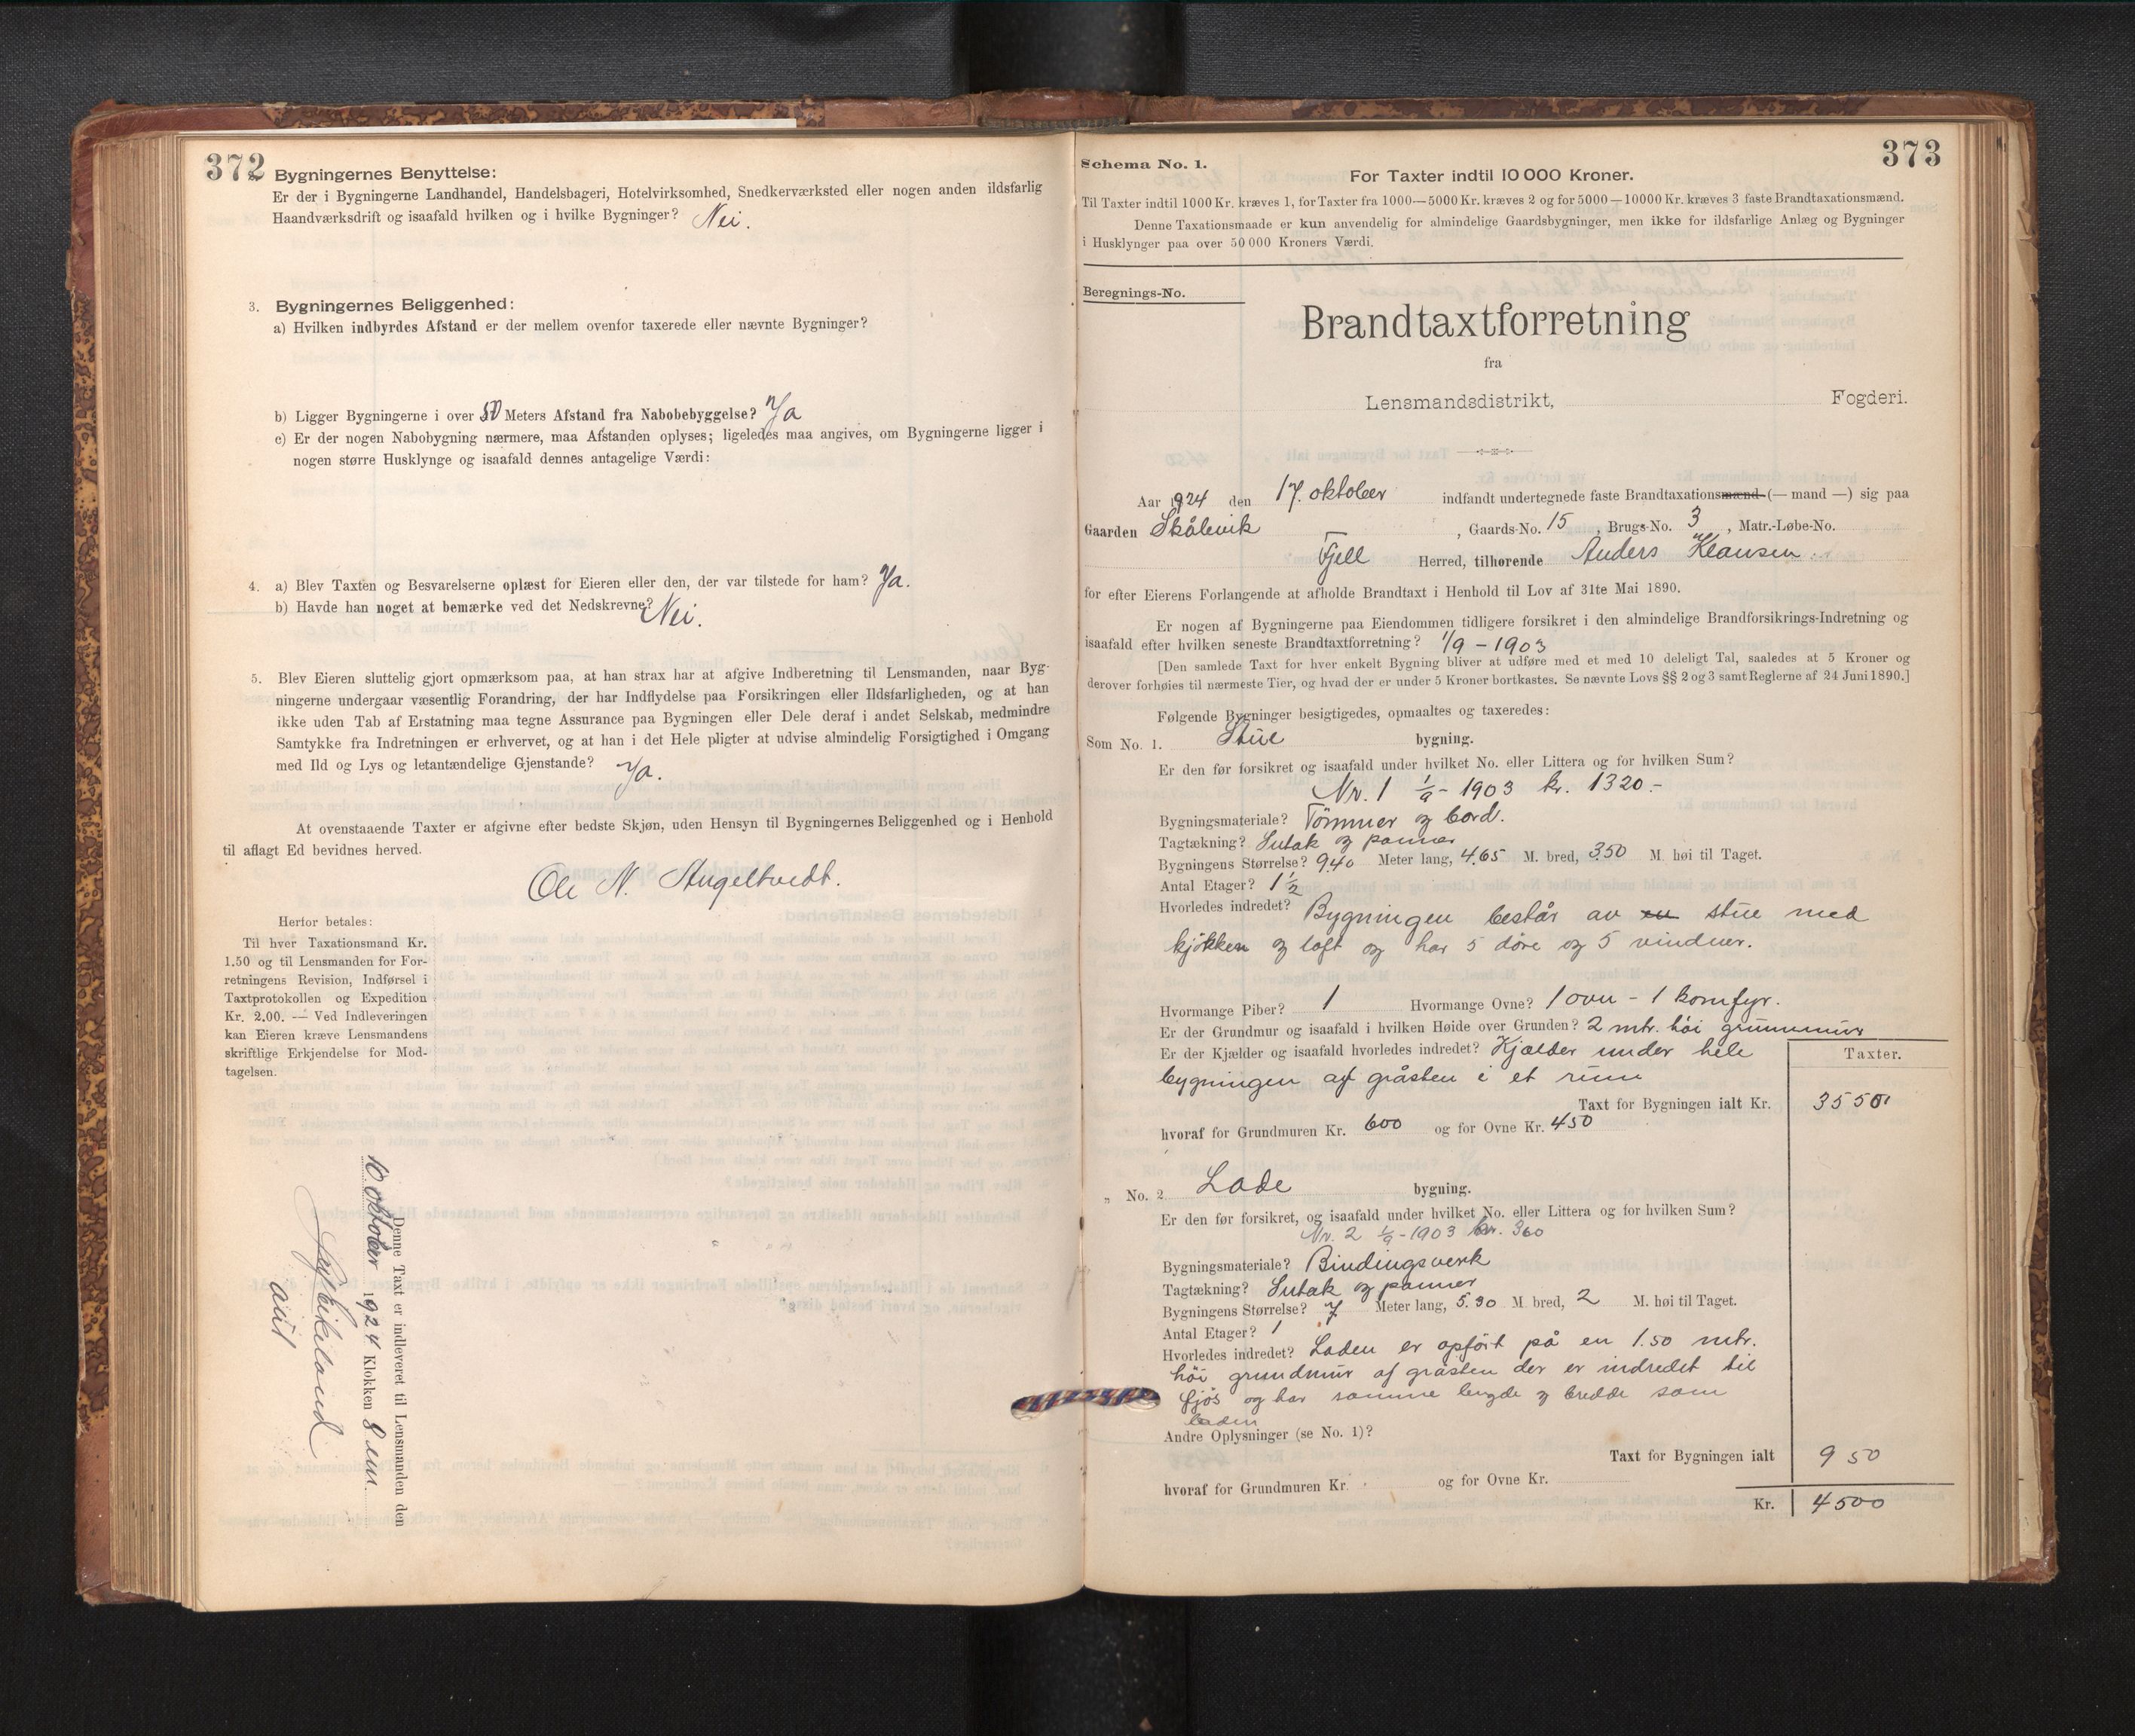 372
Bygningernes Benyttelse:
Er der i Bygningerne Landhandel, Handelsbageri, Hotelvirksomhed, Snedkerværksted eller nogen anden ildsfarlig
Haandværksdrift og isaafald hvilken og i hvilke Bygninger? Nei.
3. Bygningernes Beliggenhed:
a) Hvilken indbyrdes Afstand er der mellem ovenfor taxerede eller nævnte Bygninger?
b) Ligger Bygningerne i over 50 Meters Afstand fra Nabobebyggelse? Ja
c) Er der nogen Nabobygning nærmere, maa Afstanden oplyses; ligeledes maa angives, om Bygningerne ligger i
nogen større Husklynge og isaafald dennes antagelige Værdi:
4. a) Blev Taxten og Besvarelserne oplæst for Eieren eller den, der var tilstede for ham? Ja.
b) Havde han noget at bemærke ved det Nedskrevne? Nei.
5. Blev Eieren sluttelig gjort opmærksom paa, at han strax har at afgive Indberetning til Lensmanden, naar Byg-
ningerne undergaar væsentlig Forandring, der har Indflydelse paa Forsikringen eller Ildsfarligheden, og at han
ikke uden Tab af Erstatning maa tegne Assurance paa Bygningen eller Dele deraf i andet Selskab, medmindre
Samtykke fra Indretningen er erhvervet, og at han i det Hele pligter at udvise almindelig Forsigtighed i Omgang
med Ild og Lys og letantændelige Gjenstande? Ja.
At ovenstaaende Taxter er afgivne efter bedste Skjøn, uden Hensyn til Bygningernes Beliggenhed og i Henhold
til aflagt Ed bevidnes herved.
Ole N. Angeltvedt.
Herfor betales:
Til hver Taxationsmand Kr.
1.50 og til Lensmanden for For-
retningens Revision, Indførsel i
Taxtprotokollen og Expedition
Kr. 2.00. — Ved Indleveringen
kan Eieren kræve Lensmandens
skriftlige Erkjendelse for Mod-
tagelsen.
Denne Taxt er indleveret til Lensmanden den
10 oktober 1924 Klokken 8 em.
373
Schema No. 1.
For Taxter indtil 10 000 Kroner.
Til Taxter indtil 1000 Kr. kræves 1, for Taxter fra 1000—5000 Kr. kræves 2 og for 5000—10000 Kr. kræves 3 faste Brandtaxationsmænd.
Denne Taxationsmaade er kun anvendelig for almindelige Gaardsbygninger, men ikke for ildsfarlige Anlæg og Bygninger
i Husklynger paa over 50 000 Kroners Værdi.
Beregnings-No.
Brandtaxtforretning
fra
Lensmandsdistrikt, Fogderi.
Aar 1924 den 17. oktober indfandt undertegnede faste Brandtaxationsmænd (— mand —) sig paa
Gaarden Skålevik , Gaards-No. 15 , Brugs-No. 3 , Matr.-Løbe-No.
Fjell Herred, tilhørende Anders Klausen.
for efter Eierens Forlangende at afholde Brandtaxt i Henhold til Lov af 31te Mai 1890.
Er nogen af Bygningerne paa Eiendommen tidligere forsikret i den almindelige Brandforsikrings-Indretning og
isaafald efter hvilken seneste Brandtaxtforretning? 1/9 - 1903
[Den samlede Taxt for hver enkelt Bygning bliver at udføre med et med 10 deleligt Tal, saaledes at 5 Kroner og
derover forhøies til nærmeste Tier, og hvad der er under 5 Kroner bortkastes. Se nævnte Lovs §§ 2 og 3 samt Reglerne af 24 Juni 1890.]
Følgende Bygninger besigtigedes, opmaaltes og taxeredes:
Som No. 1. Stue bygning.
Er den før forsikret og isaafald under hvilket No. eller Littera og for hvilken Sum?
Nr. 1 1/9 - 1903 kr. 1320.-
Bygningsmateriale? Tömmer og bord.
Tagtækning? Sutak og panner
Bygningens Størrelse? 9.40 Meter lang, 4.65 M. bred, 3.50 M. høi til Taget.
Antal Etager? 1 1/2
Hvorledes indredet? Bygningen består av en stue med
kjökken og loft og har 5 döre og 5 vinduer.
Hvormange Piber? 1 Hvormange Ovne? 1 ovn - 1 komfyr.
Er der Grundmur og isaafald i hvilken Høide over Grunden? 2 mtr. höi grunnmur
Er der Kjælder og isaafald hvorledes indredet? Kjælder under hele
bygningen af gråsten i et rum
Taxter.
Taxt for Bygningen ialt Kr. 3550
hvoraf for Grundmuren Kr. 600 og for Ovne Kr. 450
„ No. 2 Lade bygning.
Er den før forsikret, og isaafald under hvilket No. eller Littera og for hvilken Sum?
Nr. 2 1/9 - 1903 kr. 360
Bygningsmateriale? Bindingsverk
Tagtækning? Sutak og panner
Bygningens Størrelse? 7 Meter lang, 5.30 M. bred, 2 M. høi til Taget.
Antal Etager? 1
Hvorledes indredet? Laden er opfört på en 1.50 mtr.
höi grundmur af gråsten der er indredet til
fjös og har samme lengde og bredde som
laden
Andre Oplysninger (se No. 1)?
Taxt for Bygningen ialt 950
hvoraf for Grundmuren Kr. og for Ovne Kr.
Kr. 4500